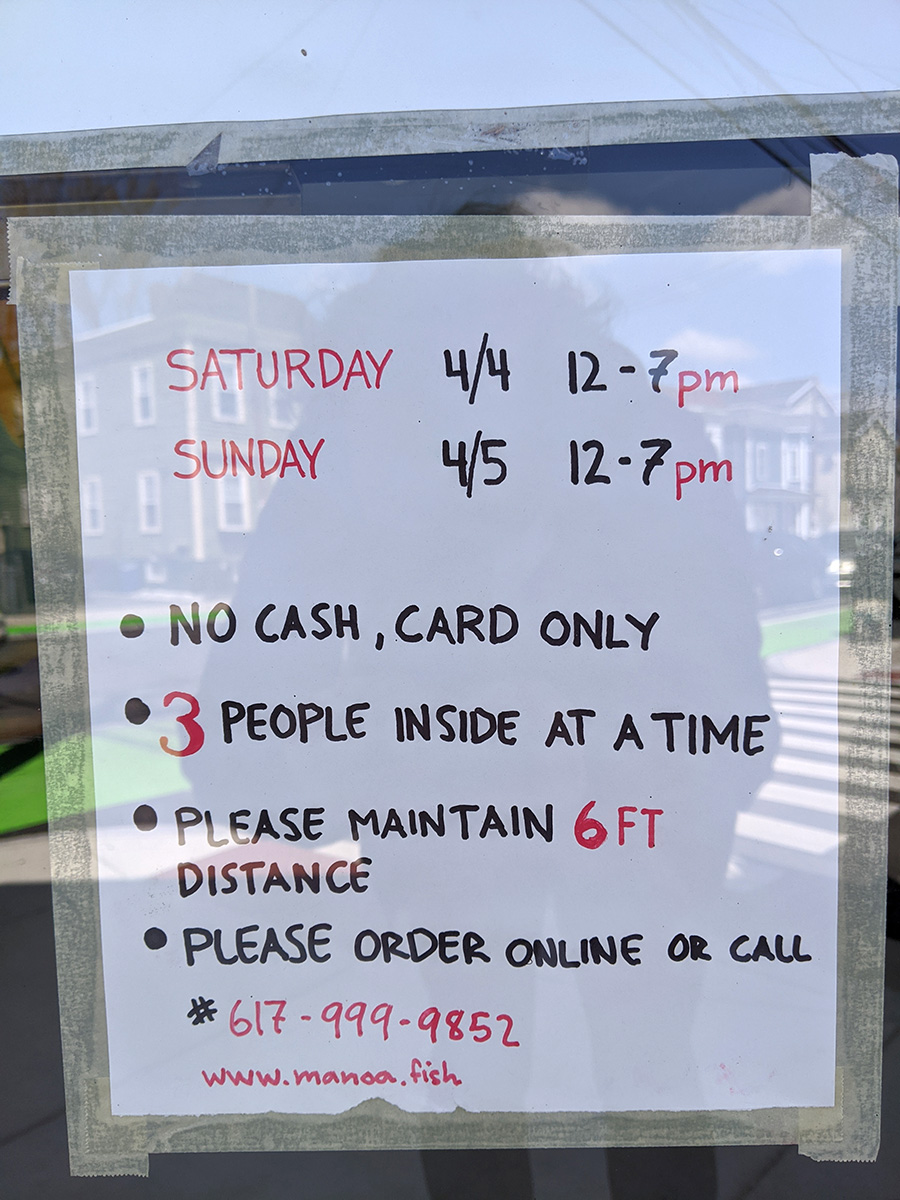 SATURDAY 4/4 12-7pm
SUNDAY 4/5 12-7pm
• NO CASH, CARD ONLY
• 3 PEOPLE INSIDE AT A TIME
• PLEASE MAINTAIN 6FT
DISTANCE
• PLEASE ORDER ONLINE OR CALL
# 617-999-9852
www.manoa.fish